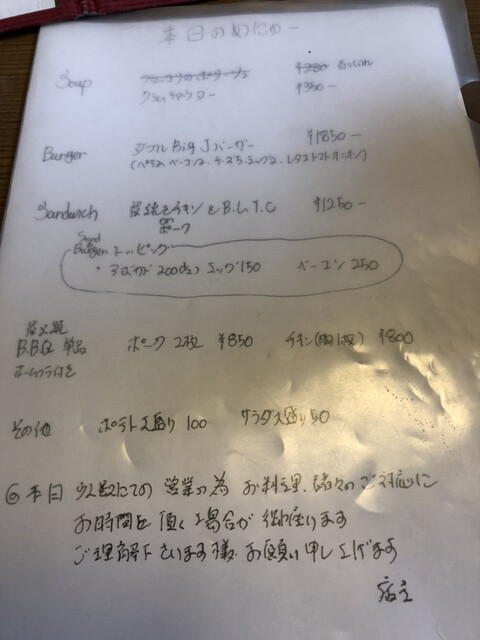 本日のめにゅー
Soup ¥380 売り切れ
クラムチャウダー ¥350-
Burger ダブルBig Jバーガー ¥1850-
(パティ2、ベーコン2、チーズ2、エッグ2、レタストマトオニオン)
Sandwich 炭焼きチキン&B.L.T.C ¥1250-
or
ポーク
Sand
Burger トッピング
・アボカド200 エッグ150 ベーコン250
炭火焼
B.B.Q 単品 ポーク2枚 ¥850 チキン(胸1枚) ¥800
ホームフライ付き
その他 ポテト大盛り100 サラダ大盛り50
◎本日 少人数にての営業の為 お料理、諸々のご対応に
お時間を頂く場合が御座ります
ご理解下さいます様 お願い申し上げます
店主